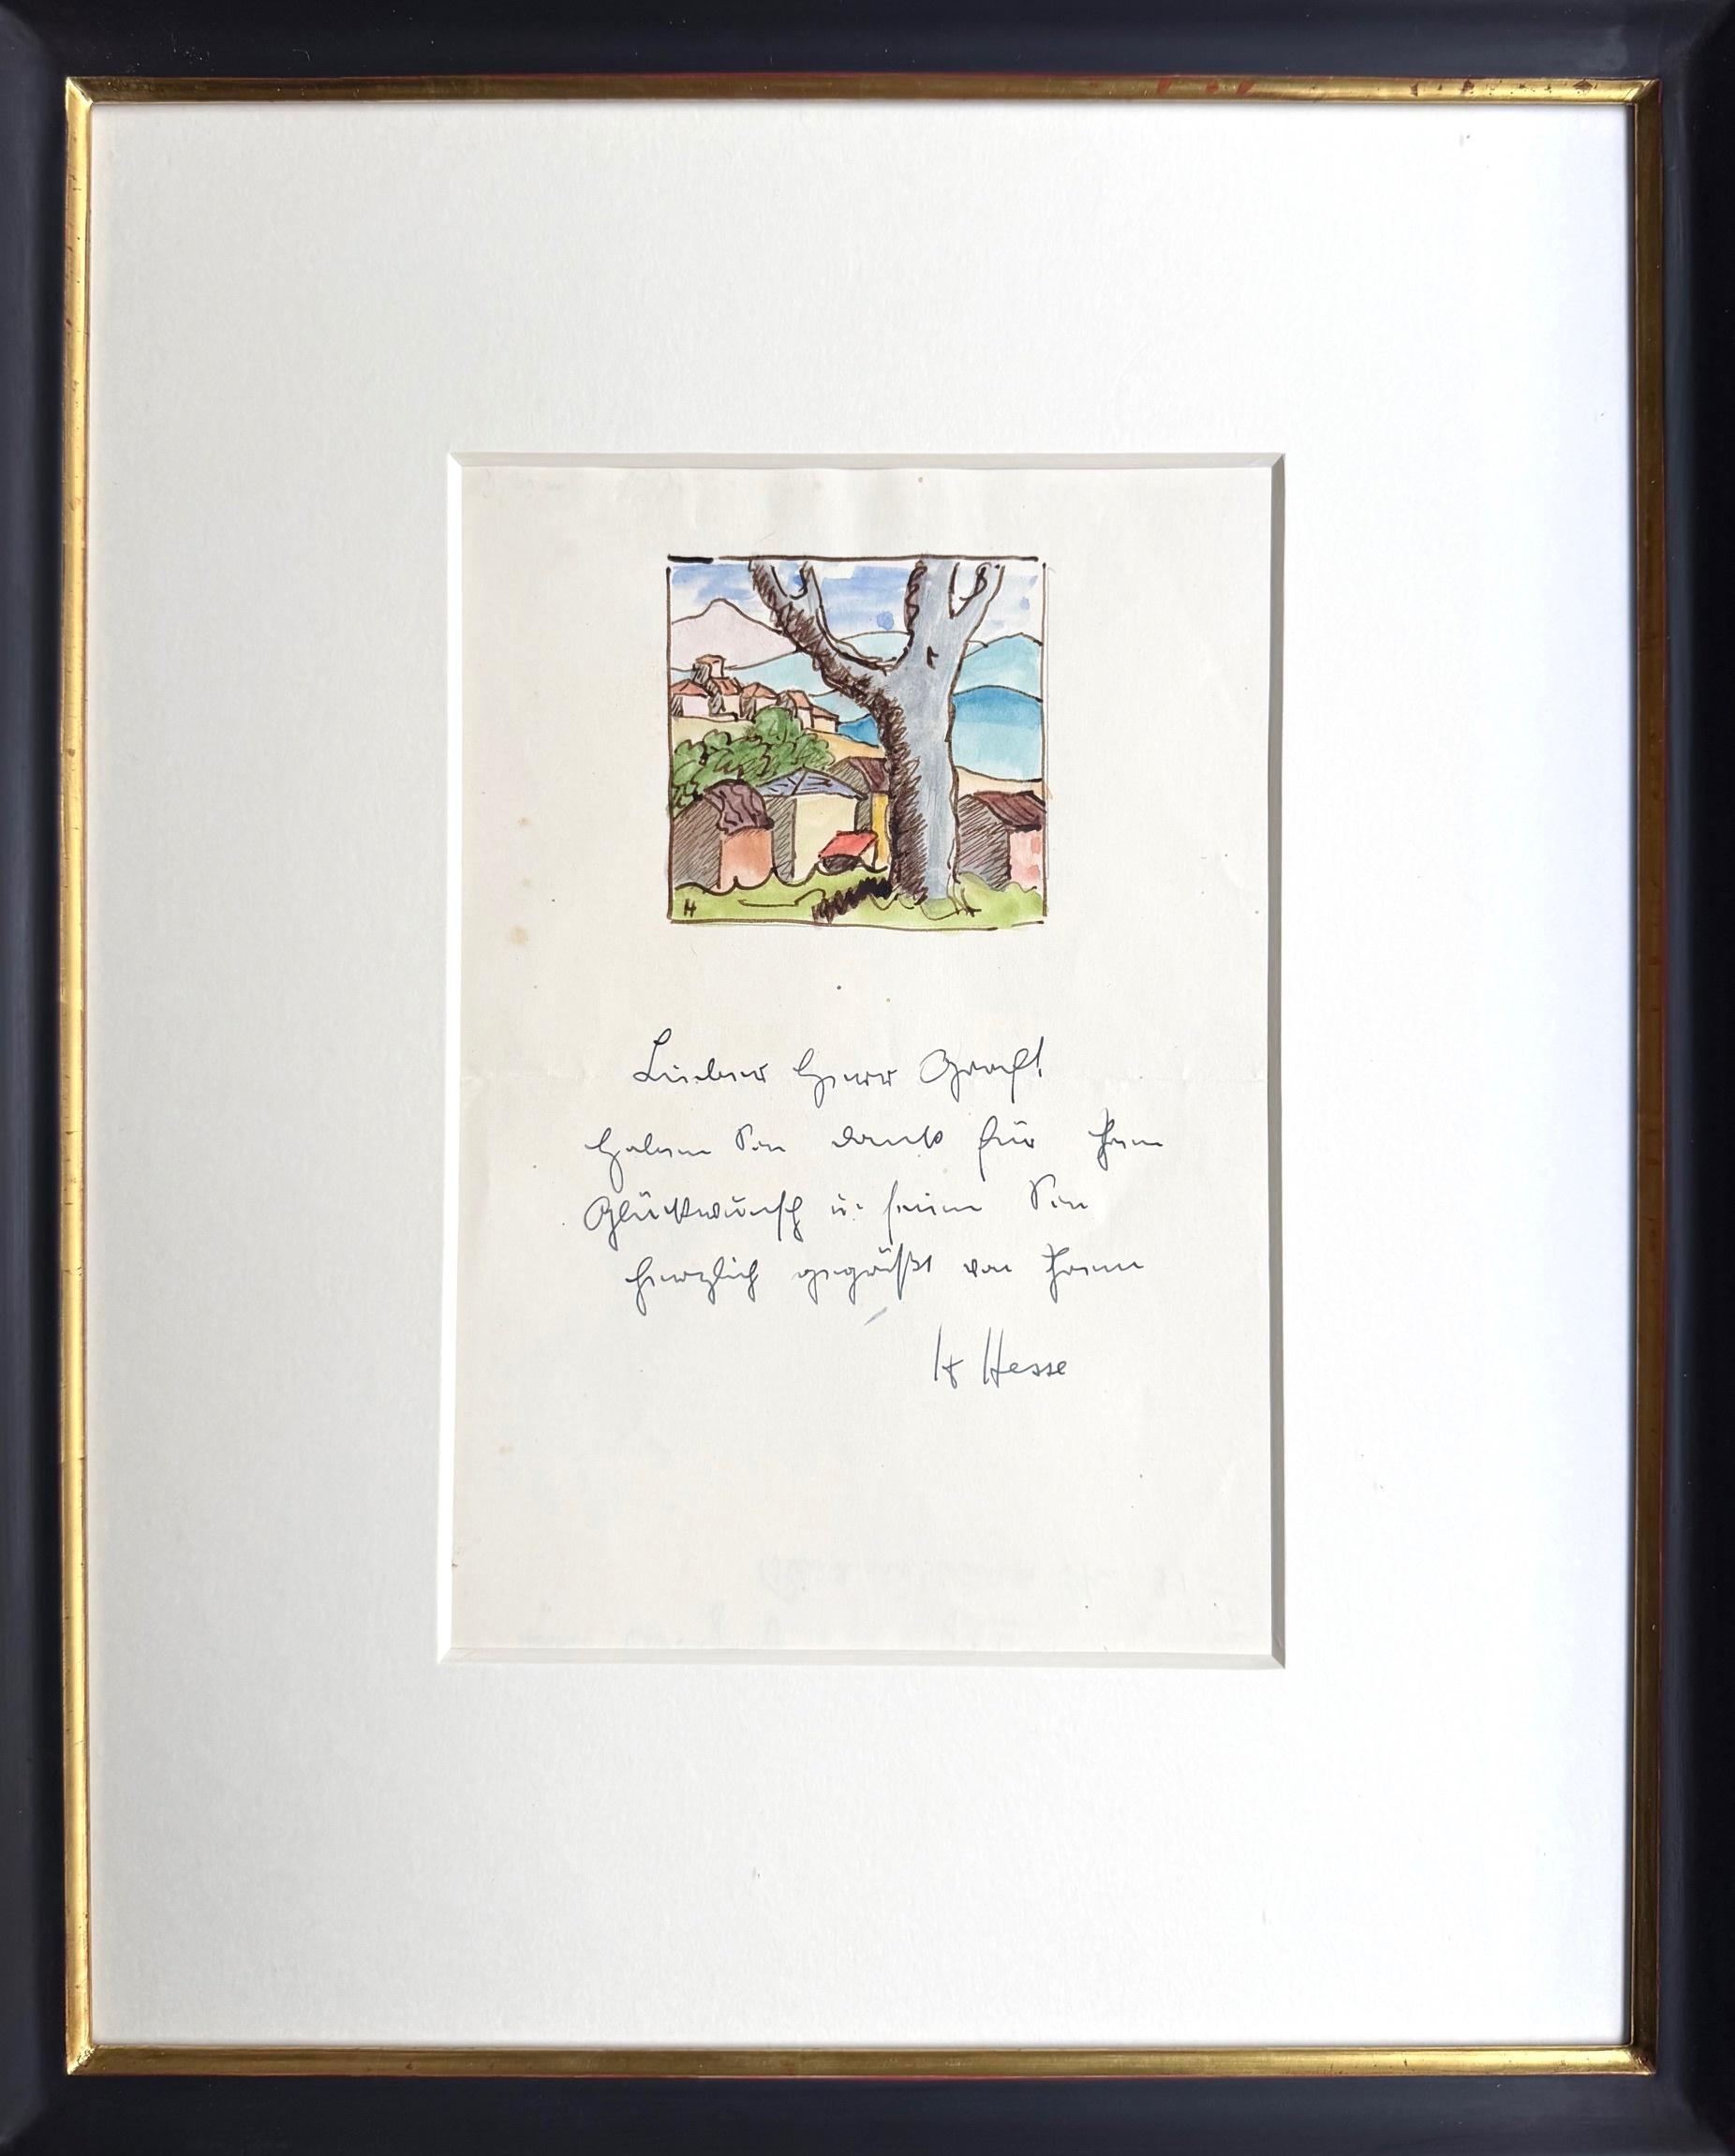 H
Lieber Herr Graf!
Haben Sie Dank für Ihren
Glückwunsch u. seien Sie
herzlich gegrüßt von Ihrem
H Hesse